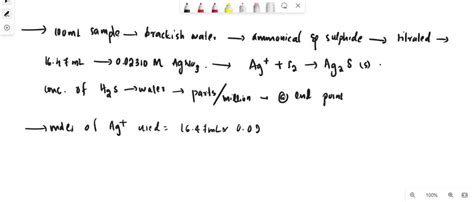 100%
→ 100mL sample → brackish water → ammonical sp sulphide → titrated →
16.47 mL → 0.02310 M AgNO3 → Ag+ + S2 → Ag2S (s).
conc. of H2S → water → parts/million → @ end point
→ moles of Ag+ used = 16.47mL x 0.09